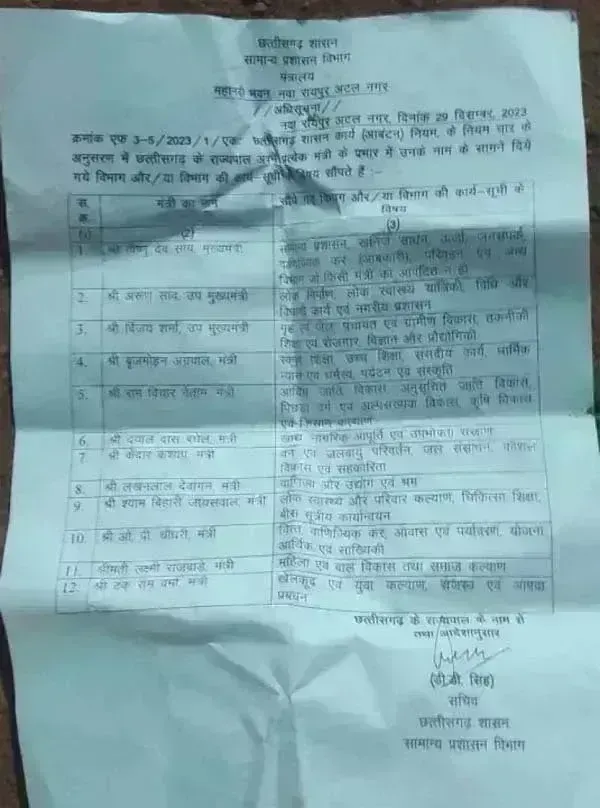 छत्तीसगढ़ शासन
सामान्य प्रशासन विभाग
मंत्रालय
महानदी भवन, नवा रायपुर अटल नगर
//अधिसूचना//
नवा रायपुर अटल नगर, दिनांक 29 दिसम्बर, 2023
क्रमांक एफ 3-5/2023/1/एकः छत्तीसगढ़ शासन कार्य (आबंटन) नियम, के नियम चार के
अनुसरण में छत्तीसगढ़ के राज्यपाल प्रत्येक मंत्री के प्रभार में उनके नाम के सामने दिये
गये विभाग और/या विभाग की कार्य-सूची के विषय सौंपते है :-
स. क्र. मंत्री का नाम सौंपे गए विभाग और/या विभाग की कार्य-सूची के
विषय
(1) (2) (3)
1. श्री विष्णु देव साय, मुख्यमंत्री सामान्य प्रशासन, खनिज साधन, ऊर्जा, जनसंपर्क,
वाणिज्यिक कर (आबकारी), परिवहन एवं अन्य
विभाग जो किसी मंत्री को आबंटित न हो
2. श्री अरूण साव, उप मुख्यमंत्री लोक निर्माण, लोक स्वास्थ्य यांत्रिकी, विधि और
विधायी कार्य एवं नगरीय प्रशासन
3. श्री विजय शर्मा, उप मुख्यमंत्री गृह एवं जेल, पंचायत एवं ग्रामीण विकास, तकनीकी
शिक्षा एवं रोजगार, विज्ञान और प्रौद्योगिकी
4. श्री बृजमोहन अग्रवाल, मंत्री स्कूल शिक्षा, उच्च शिक्षा, संसदीय कार्य, धार्मिक
न्यास एवं धर्मस्व, पर्यटन एवं संस्कृति
5. श्री राम विचार नेताम, मंत्री आदिम जाति विकास, अनुसूचित जाति विकास,
पिछड़ा वर्ग एवं अल्पसंख्यक विकास, कृषि विकास
एवं किसान कल्याण
6. श्री दयाल दास बघेल, मंत्री खाद्य नागरिक आपूर्ति एवं उपभोक्ता संरक्षण
7. श्री केदार कश्यप, मंत्री वन एवं जलवायु परिवर्तन, जल संसाधन, कौशल
विकास एवं सहकारिता
8. श्री लखनलाल देवांगन, मंत्री वाणिज्य और उद्योग एवं श्रम
9. श्री श्याम बिहारी जायसवाल, मंत्री लोक स्वास्थ्य और परिवार कल्याण, चिकित्सा शिक्षा,
बीस सूत्रीय कार्यान्वयन
10. श्री ओ. पी. चौधरी, मंत्री वित्त, वाणिज्यिक कर, आवास एवं पर्यावरण, योजना
आर्थिक एवं सांख्यिकी
11. श्रीमती लक्ष्मी राजवाड़े, मंत्री महिला एवं बाल विकास तथा समाज कल्याण
12. श्री टंक राम वर्मा, मंत्री खेलकूद एवं युवा कल्याण, राजस्व एवं आपदा
प्रबंधन
छत्तीसगढ़ के राज्यपाल के नाम से
तथा आदेशानुसार
(डी.डी. सिंह)
सचिव
छत्तीसगढ़ शासन
सामान्य प्रशासन विभाग